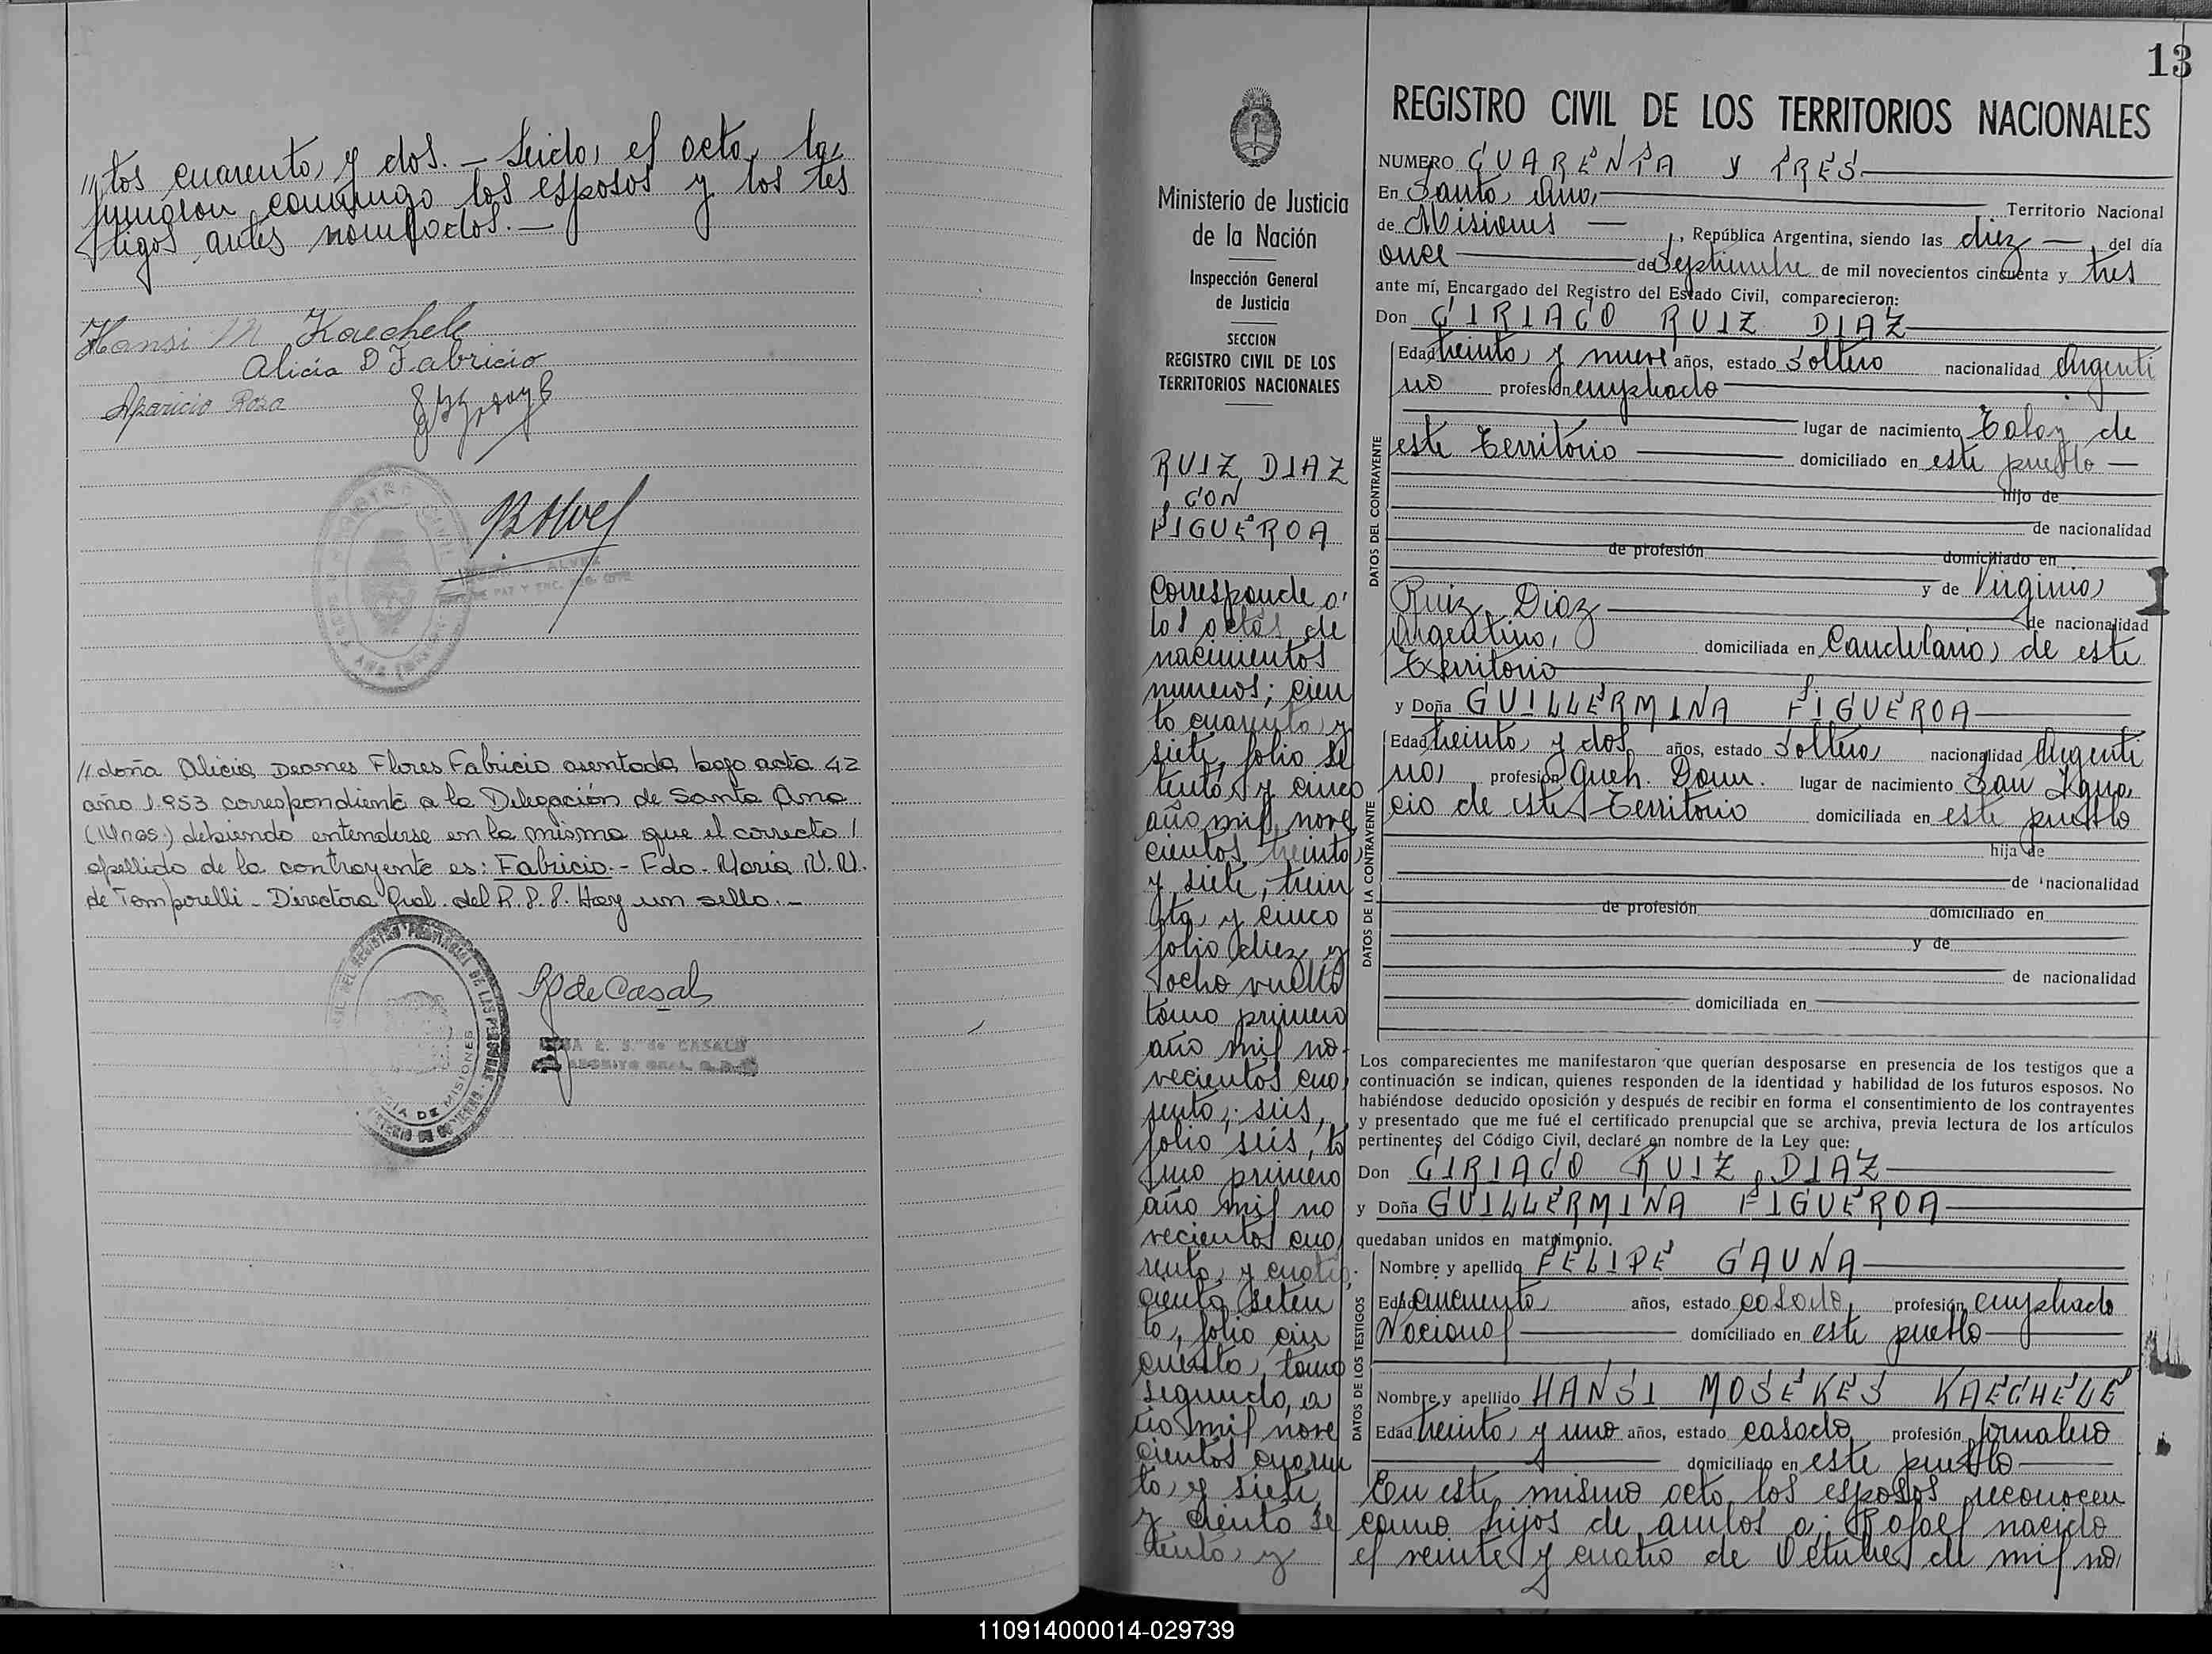 //tos cuarenta y dos. – Leida, el acta, la
firmaron conmigo los esposos y los tes
tigos antes nombrados. –
Hansi M Kaechele
Alicia D Fabricio
Aparicio Rosa
// doña Alicia Deanes Flores Fabricio asentada bajo acta 42
año 1.953 correspondiente a la Delegación de Santa Ana
(Mnes.) debiendo entenderse en la misma que el correcto /
apellido de la contrayente es: Fabricio. - Fdo. María N. N.
de Temporelli - Directora Gral. del R. P. P. Hay un sello. –
PROVINCIA DE MISIONES
R de Casal
E. S. de CASALS
13
Ministerio de Justicia
de la Nación
Inspección General
de Justicia
SECCION
REGISTRO CIVIL DE LOS
TERRITORIOS NACIONALES
RUIZ DIAZ
CON
FIGUEROA
Corresponde a
las actas de
nacimientos
numeros; cien
to cuarenta y
siete, folio se
tenta y cinco
año mil nove
cientos treinta
y siete, trein
ta y cinco
folio diez y
ocho vuelta
tomo primero
año mil no
vecientos cua
renta; seis,
folio seis, to
mo primero
año mil no
vecientos cua
renta y cuatro;
ciento seten
ta, folio cin
cuenta, tomo
segundo, a
ño mil nove
cientos cuaren
ta y siete,
y ciento se
tenta y
REGISTRO CIVIL DE LOS TERRITORIOS NACIONALES
NUMERO CUARENTA Y TRES
En Santa Ana, Territorio Nacional
de Misiones, República Argentina, siendo las diez, del día
once de Septiembre de mil novecientos cincuenta y tres
ante mí, Encargado del Registro del Estado Civil, comparecieron:
Don CIRIACO RUIZ DIAZ
DATOS DEL CONTRAYENTE
Edad treinta y nueve años, estado soltero nacionalidad Argenti
no profesión empleado
lugar de nacimiento de
este Territorio domiciliado en este pueblo
hijo de
de nacionalidad
de profesión domiciliado en
y de Virginia
Ruiz Diaz de nacionalidad
Argentina, domiciliada en Candelaria, de este
Territorio
y Doña GUILLERMINA FIGUEROA
DATOS DE LA CONTRAYENTE
Edad treinta y dos años, estado soltera, nacionalidad Argenti
na, profesión Queh. Dom. lugar de nacimiento San Igna
cio de este Territorio domiciliada en este pueblo
hija de
de nacionalidad
de profesión domiciliado en
y de
de nacionalidad
domiciliada en
Los comparecientes me manifestaron que querían desposarse en presencia de los testigos que a
continuación se indican, quienes responden de la identidad y habilidad de los futuros esposos. No
habiéndose deducido oposición y después de recibir en forma el consentimiento de los contrayentes
y presentado que me fué el certificado prenupcial que se archiva, previa lectura de los artículos
pertinentes del Código Civil, declaré en nombre de la Ley que:
Don CIRIACO RUIZ DIAZ
y Doña GUILLERMINA FIGUEROA
quedaban unidos en matrimonio.
DATOS DE LOS TESTIGOS
Nombre y apellido FELIPE GAUNA
Edad cincuenta años, estado casado, profesión empleado
Nacional domiciliado en este pueblo
Nombre y apellido HANSI MOSEKES KAECHELE
Edad treinta y uno años, estado casado, profesión jornalero
domiciliado en este pueblo
En este mismo acto los esposos reconocen
como hijos de ambos a: Rafael nacido
el veinte y cuatro de Octubre de mil no
110914000014-029739